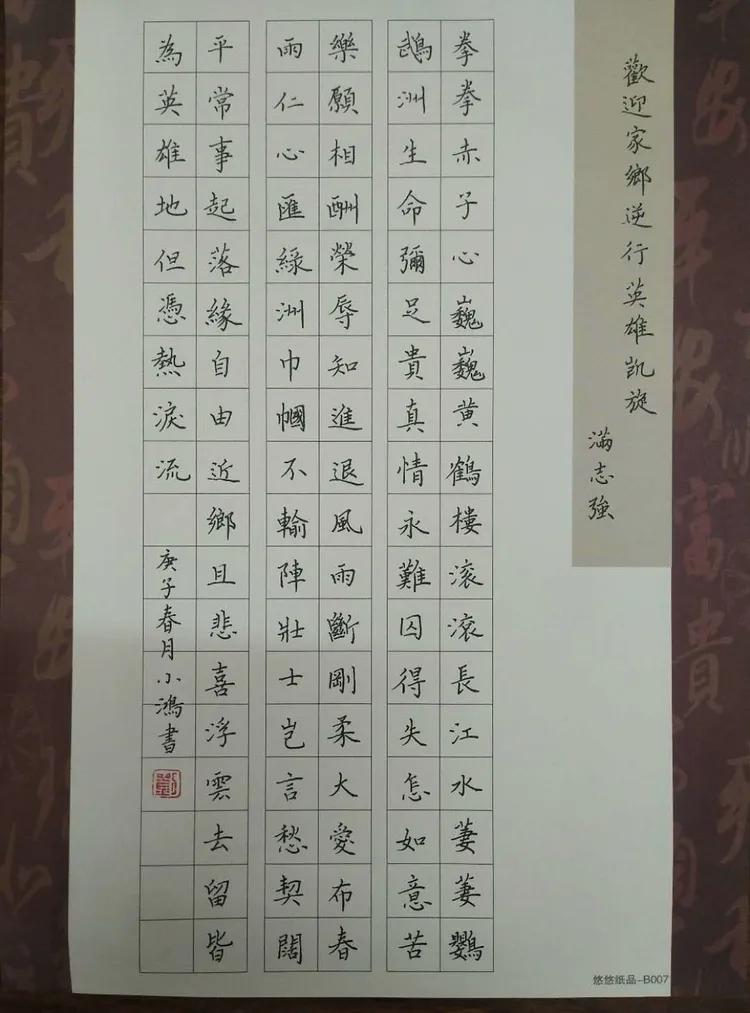 歡迎家鄉逆行英雄凱旋
滿志強
拳拳赤子心巍巍黄鶴樓滾滾長江水萋萋鸚
鵡洲生命彌足貴真情永難囚得失怎如意苦
樂願相酬榮辱知進退風雨斷剛柔大愛布春
雨仁心匯綠洲巾幗不輸陣壯士豈言愁契闊
平常事起落緣自由近鄉且悲喜浮雲去留皆
為英雄地但憑熱淚流
庚子春月小鴻書
悠悠紙品-B007